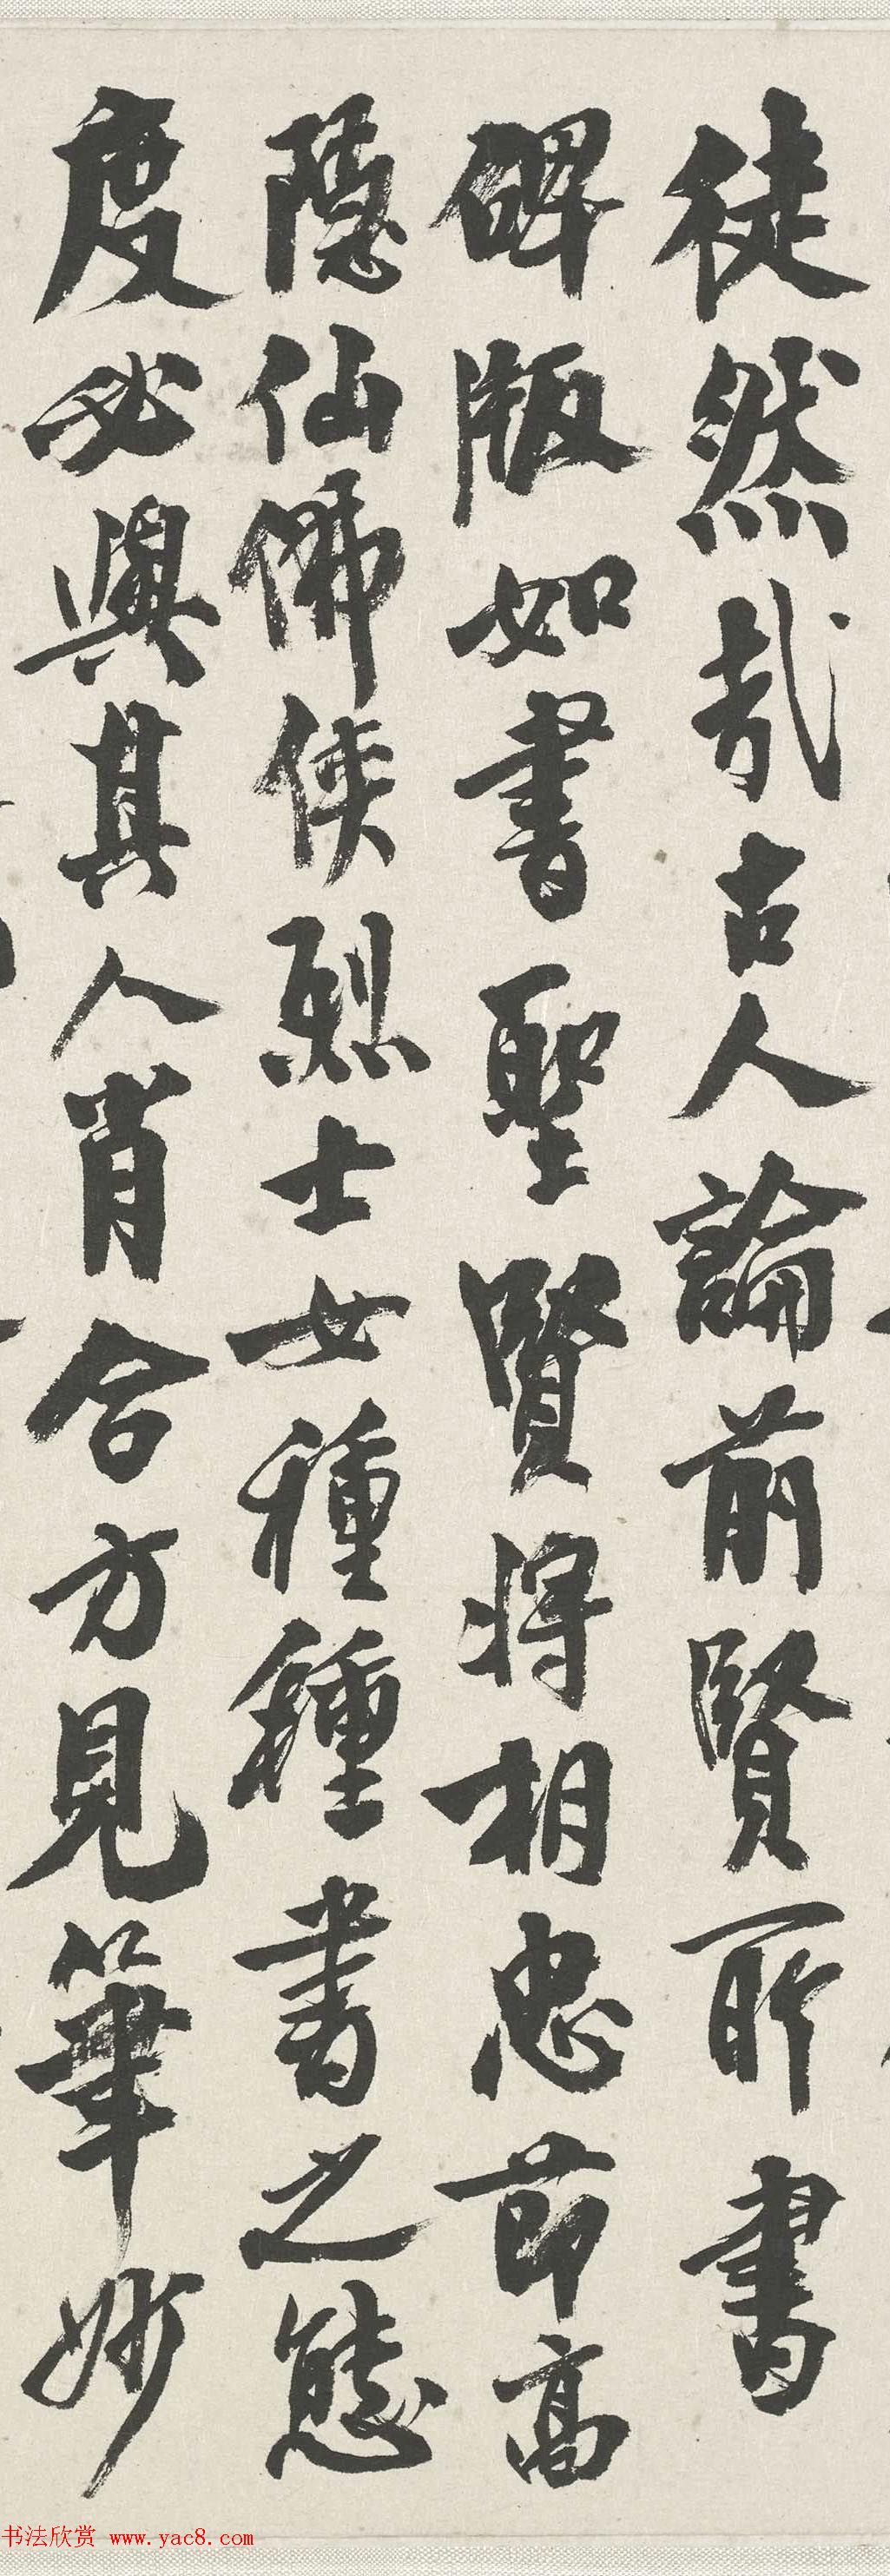 徒然哉古人論前賢所書
碑版如書聖賢將相忠節高
隱仙佛俠烈士女種種書之態
度必與其人肖合方見筆妙
书法欣赏 www.yac8.com